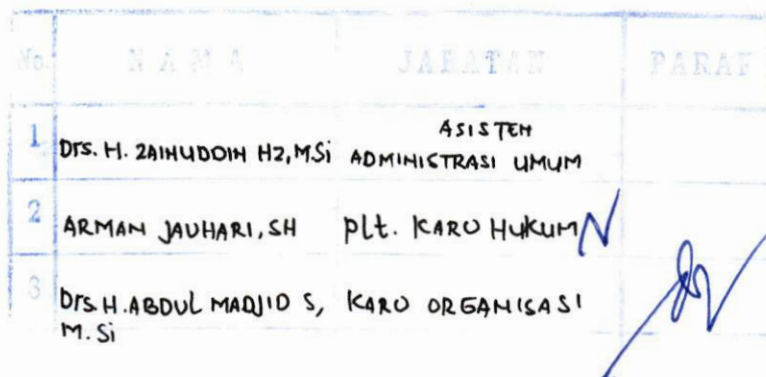 No. NAMA JABATAN PARAF
1 Drs. H. ZAINUDDIN HZ, M.Si ASISTEN ADMINISTRASI UMUM
2 ARMAN JAUHARI, SH Plt. KARO HUKUM
3 Drs. H. ABDUL MADJID S, KARO ORGANISASI
M. Si